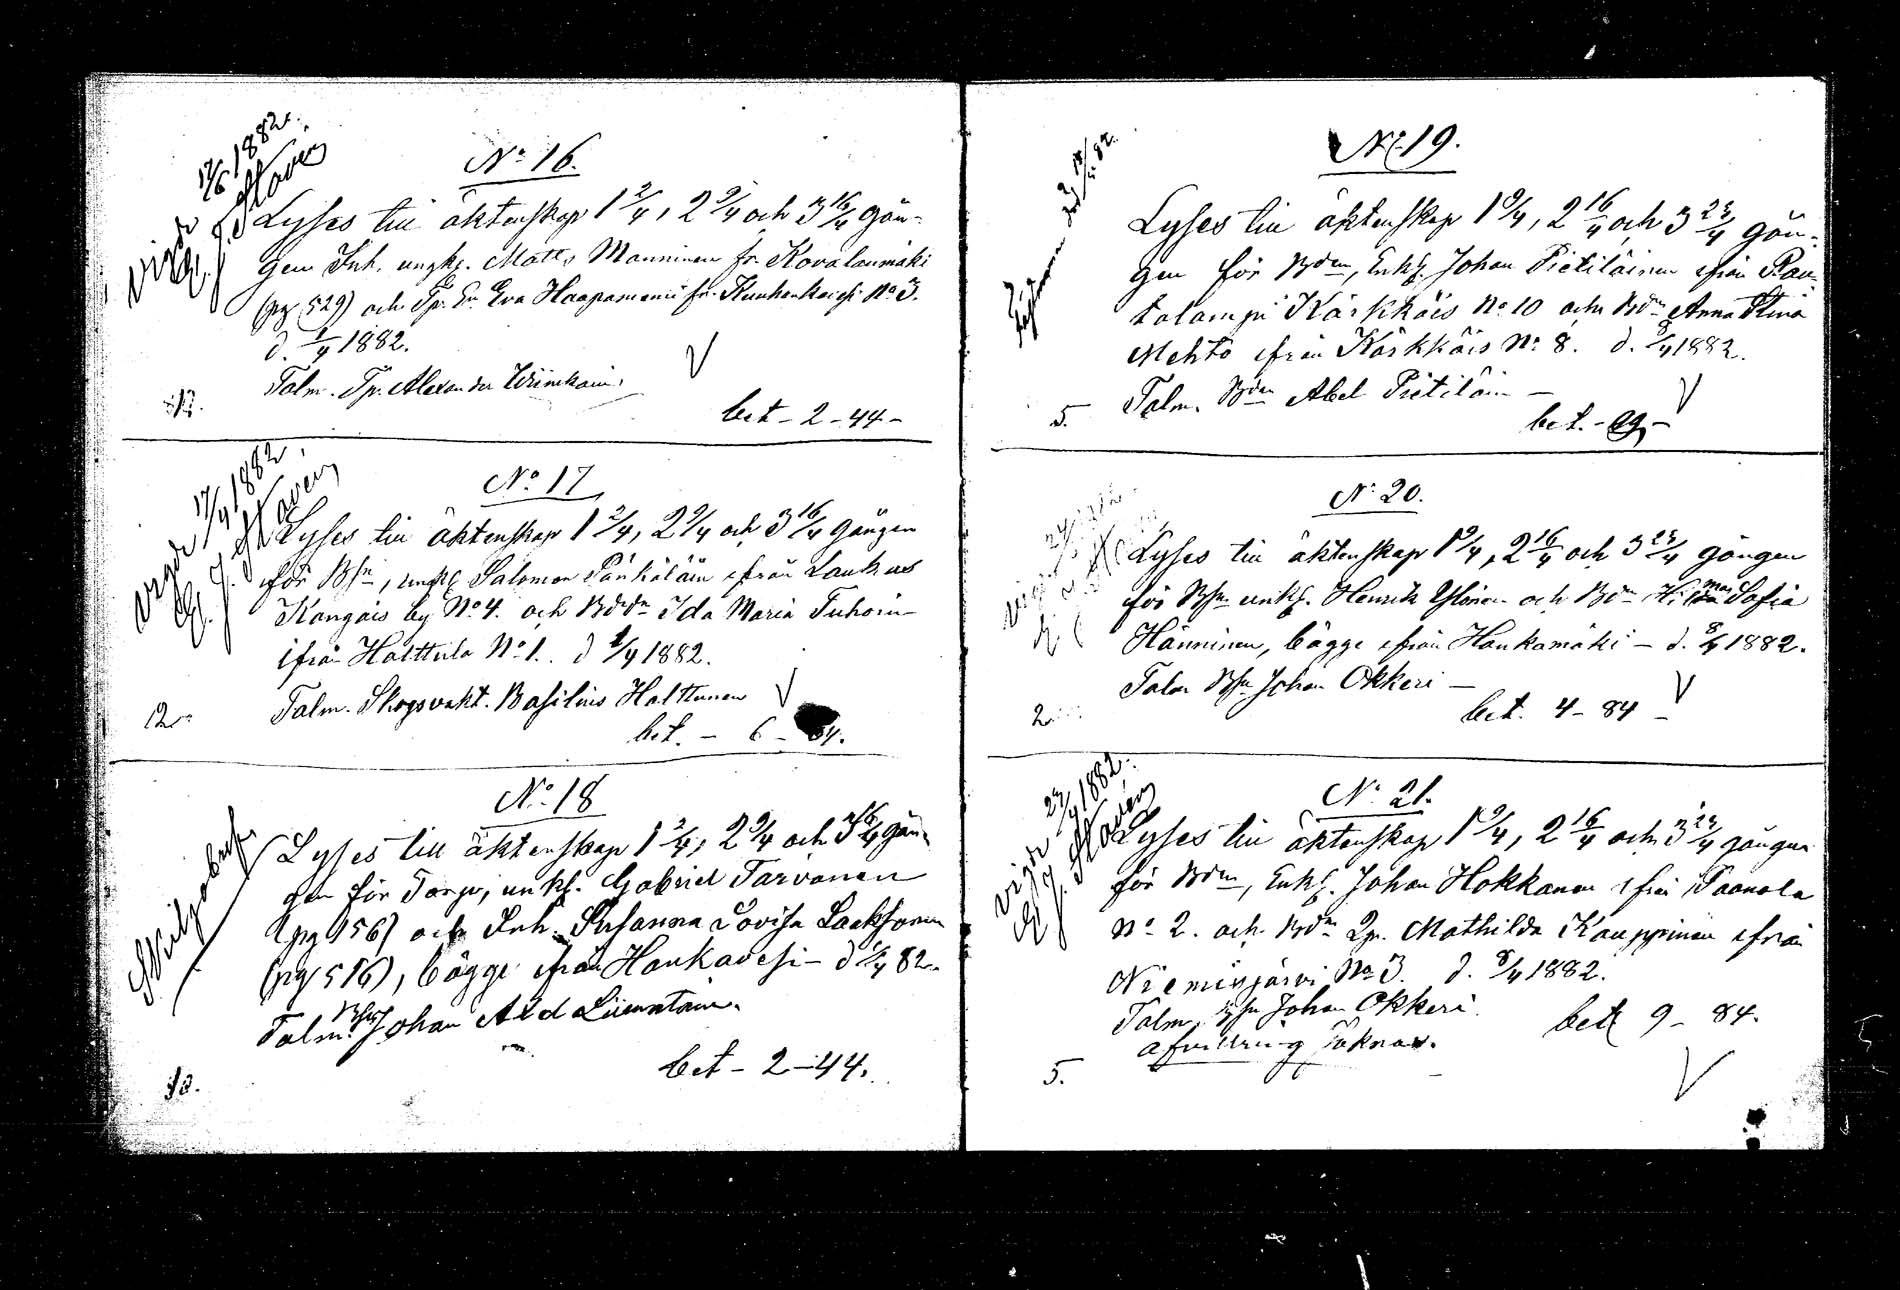 vigde 17/6 1882.
No 16.
Lyses till äktenskap 1 2/4, 2 9/4 och 3 16/4 gån-
gen Inh. ungk. Matts Manninen fr. Kovalanmäki
(pg 529) och Tp. Eva Haapamemi fr. Kuuhankavesi No 3.
d. 1/4 1882.
Talm. Tp. Alexander
bet - 2 - 44 -
vigde 17/4 1882.
No 17
Lyses till äktenskap 1 2/4, 2 9/4 och 3 16/4 gången
för Bsn, unkl Salomon Pänkäläin ifrån Laukas
Kangais by No 4. och Bdrdn Ida Maria Tuhoin
ifrån Halttula No 1. d 1/4 1882.
Talm. Skogsvakt. Basilius Halttunen
12.
bet. - 6 - 84.
No 18
Lyses till äktenskap 1 2/4, 2 9/4 och 3 16/4 gån-
gen för Torp, unkl. Gabriel Tarvanen
(pg 156) och Inh. Susanna Lovisa
(pg 516), bägge ifrån Hankavesi - d 1/4 82.
Talm. Johan Ald Liimatain.
bet - 2 - 44.
No 19.
Lyses till äktenskap 1 9/4, 2 16/4 och 3 23/4 gån-
gen för Bdn, Enkl. Johan Pietiläinen ifrån Rau-
talampi Kärkkäis No 10 och Bdn Anna Stina
Mehto ifrån Kärkkäis No 8. d. 8/4 1882.
Talm. Bdn Abel Pietiläin -
5.
bet.
No 20.
Lyses till äktenskap 1 9/4, 2 16/4 och 3 23/4 gången
för Bsn unkl. Henrik Ylönen och Bdn Hilma Sofia
Hänninen, bägge ifrån Hankamäki - d. 8/4 1882.
Talm Bsn Johan Okkeri -
2.
bet. 4 - 84 -
vigde 23/4 1882.
No 21.
Lyses till äktenskap 1 9/4, 2 16/4 och 3 23/4 gången
för Bdn, Enkl. Johan Hokkanen ifrån Paanala
No 2. och Bdn Qp. Mathilda Kauppinen ifrån
Niemisjärvi No 3. d. 8/4 1882.
Talm. Bsn Johan Okkeri.
bet 9 - 84.
afvittring saknas.
5.